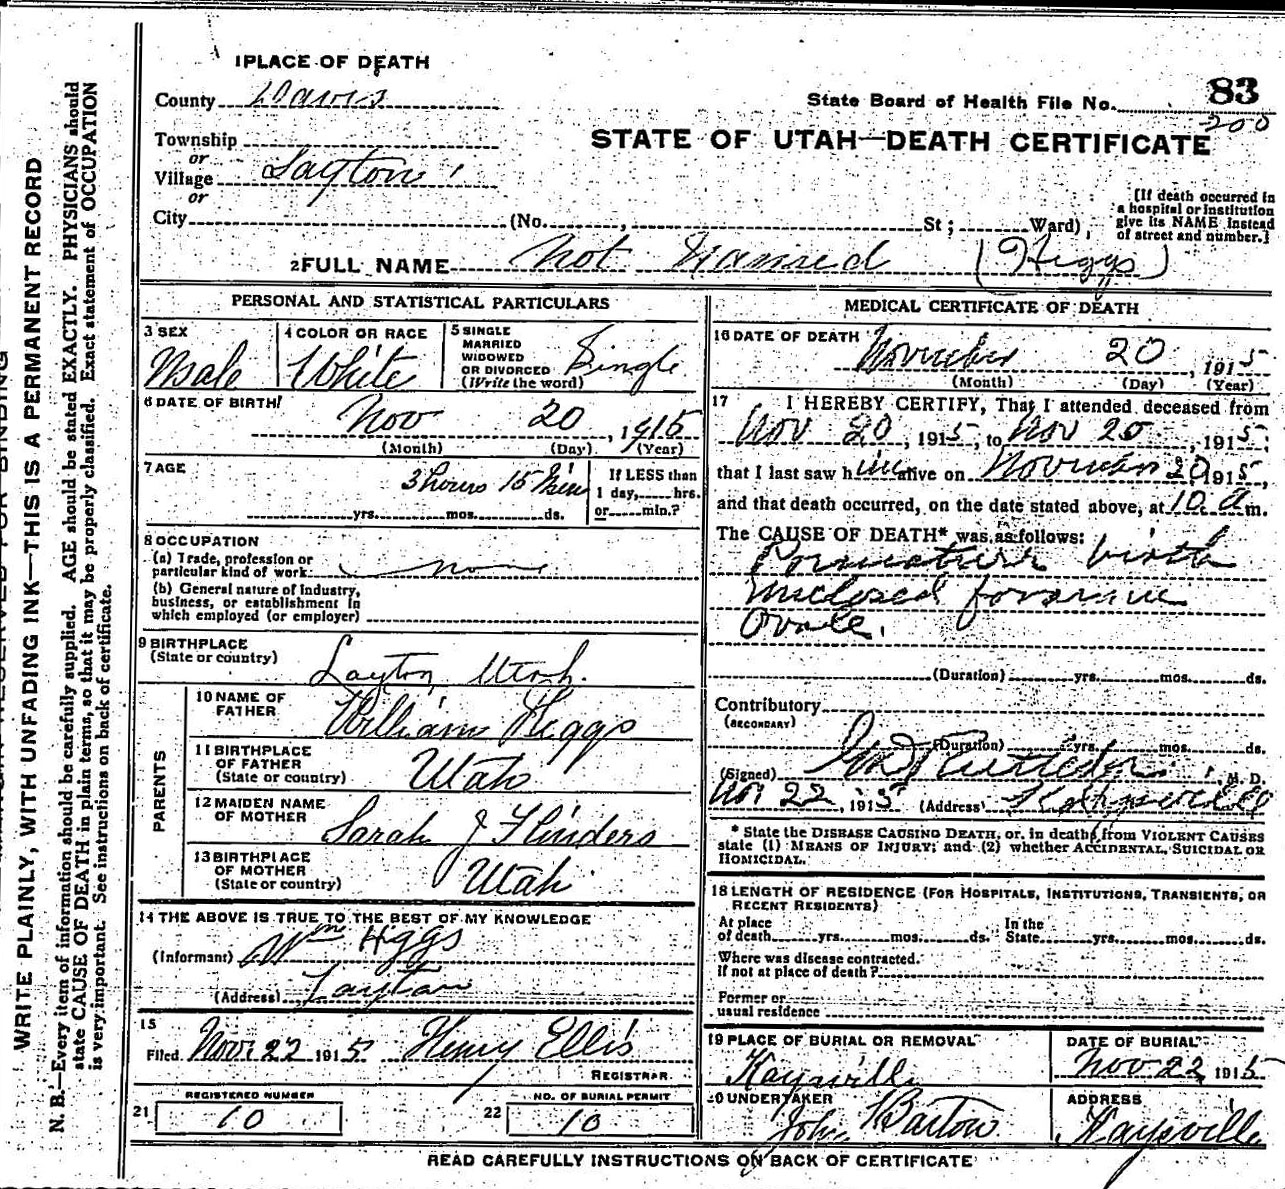 1 PLACE OF DEATH
County Davis
State Board of Health File No. 83
200
Township
or
Village Layton
or
City (No. , St; Ward)
STATE OF UTAH—DEATH CERTIFICATE
[If death occurred in
a hospital or institution
give its NAME instead
of street and number.]
2 FULL NAME Not Named (Higgs)
PERSONAL AND STATISTICAL PARTICULARS
3 SEX
Male
4 COLOR OR RACE
White
5 SINGLE
MARRIED
WIDOWED
OR DIVORCED
(Write the word)
Single
6 DATE OF BIRTH
Nov 20, 1915
(Month) (Day) (Year)
7 AGE
3 hours 15 Min
yrs. mos. ds.
If LESS than
1 day, hrs.
or min.?
8 OCCUPATION
(a) Trade, profession or
particular kind of work none
(b) General nature of industry,
business, or establishment in
which employed (or employer)
9 BIRTHPLACE
(State or country)
Layton Utah.
PARENTS
10 NAME OF
FATHER
William Higgs
11 BIRTHPLACE
OF FATHER
(State or country)
Utah
12 MAIDEN NAME
OF MOTHER
Sarah J Flinders
13 BIRTHPLACE
OF MOTHER
(State or country)
Utah
14 THE ABOVE IS TRUE TO THE BEST OF MY KNOWLEDGE
(Informant) Wm Higgs
(Address) Layton
15
Filed Nov. 22 1915 Henry Ellis
REGISTRAR.
21
REGISTERED NUMBER
10
22
NO. OF BURIAL PERMIT
10
MEDICAL CERTIFICATE OF DEATH
16 DATE OF DEATH November 20, 1915
(Month) (Day) (Year)
17 I HEREBY CERTIFY, That I attended deceased from
Nov 20, 1915, to Nov 20, 1915,
that I last saw him alive on November 20 1915,
and that death occurred, on the date stated above, at 10 a m.
The CAUSE OF DEATH* was as follows:
Premature birth
unclosed foramine
Ovale.
(Duration) yrs. mos. ds.
Contributory
(SECONDARY)
(Duration) yrs. mos. ds.
(Signed) , M. D.
Nov 22, 1915 (Address) Kaysville
* State the DISEASE CAUSING DEATH, or, in deaths from VIOLENT CAUSES
state (1) MEANS OF INJURY; and (2) whether ACCIDENTAL, SUICIDAL OR
HOMICIDAL.
18 LENGTH OF RESIDENCE (FOR HOSPITALS, INSTITUTIONS, TRANSIENTS, OR
RECENT RESIDENTS)
At place
of death yrs. mos. ds.
In the
State yrs. mos. ds.
Where was disease contracted.
if not at place of death?
Former or
usual residence
19 PLACE OF BURIAL OR REMOVAL
Kaysville
DATE OF BURIAL
Nov 22, 1915
20 UNDERTAKER
John Barton
ADDRESS
Kaysville
READ CAREFULLY INSTRUCTIONS ON BACK OF CERTIFICATE
WRITE PLAINLY, WITH UNFADING INK—THIS IS A PERMANENT RECORD
N. B.—Every item of information should be carefully supplied. AGE should be stated EXACTLY. PHYSICIANS should
state CAUSE OF DEATH in plain terms, so that it may be properly classified. Exact statement of OCCUPATION
is very important. See instructions on back of certificate.